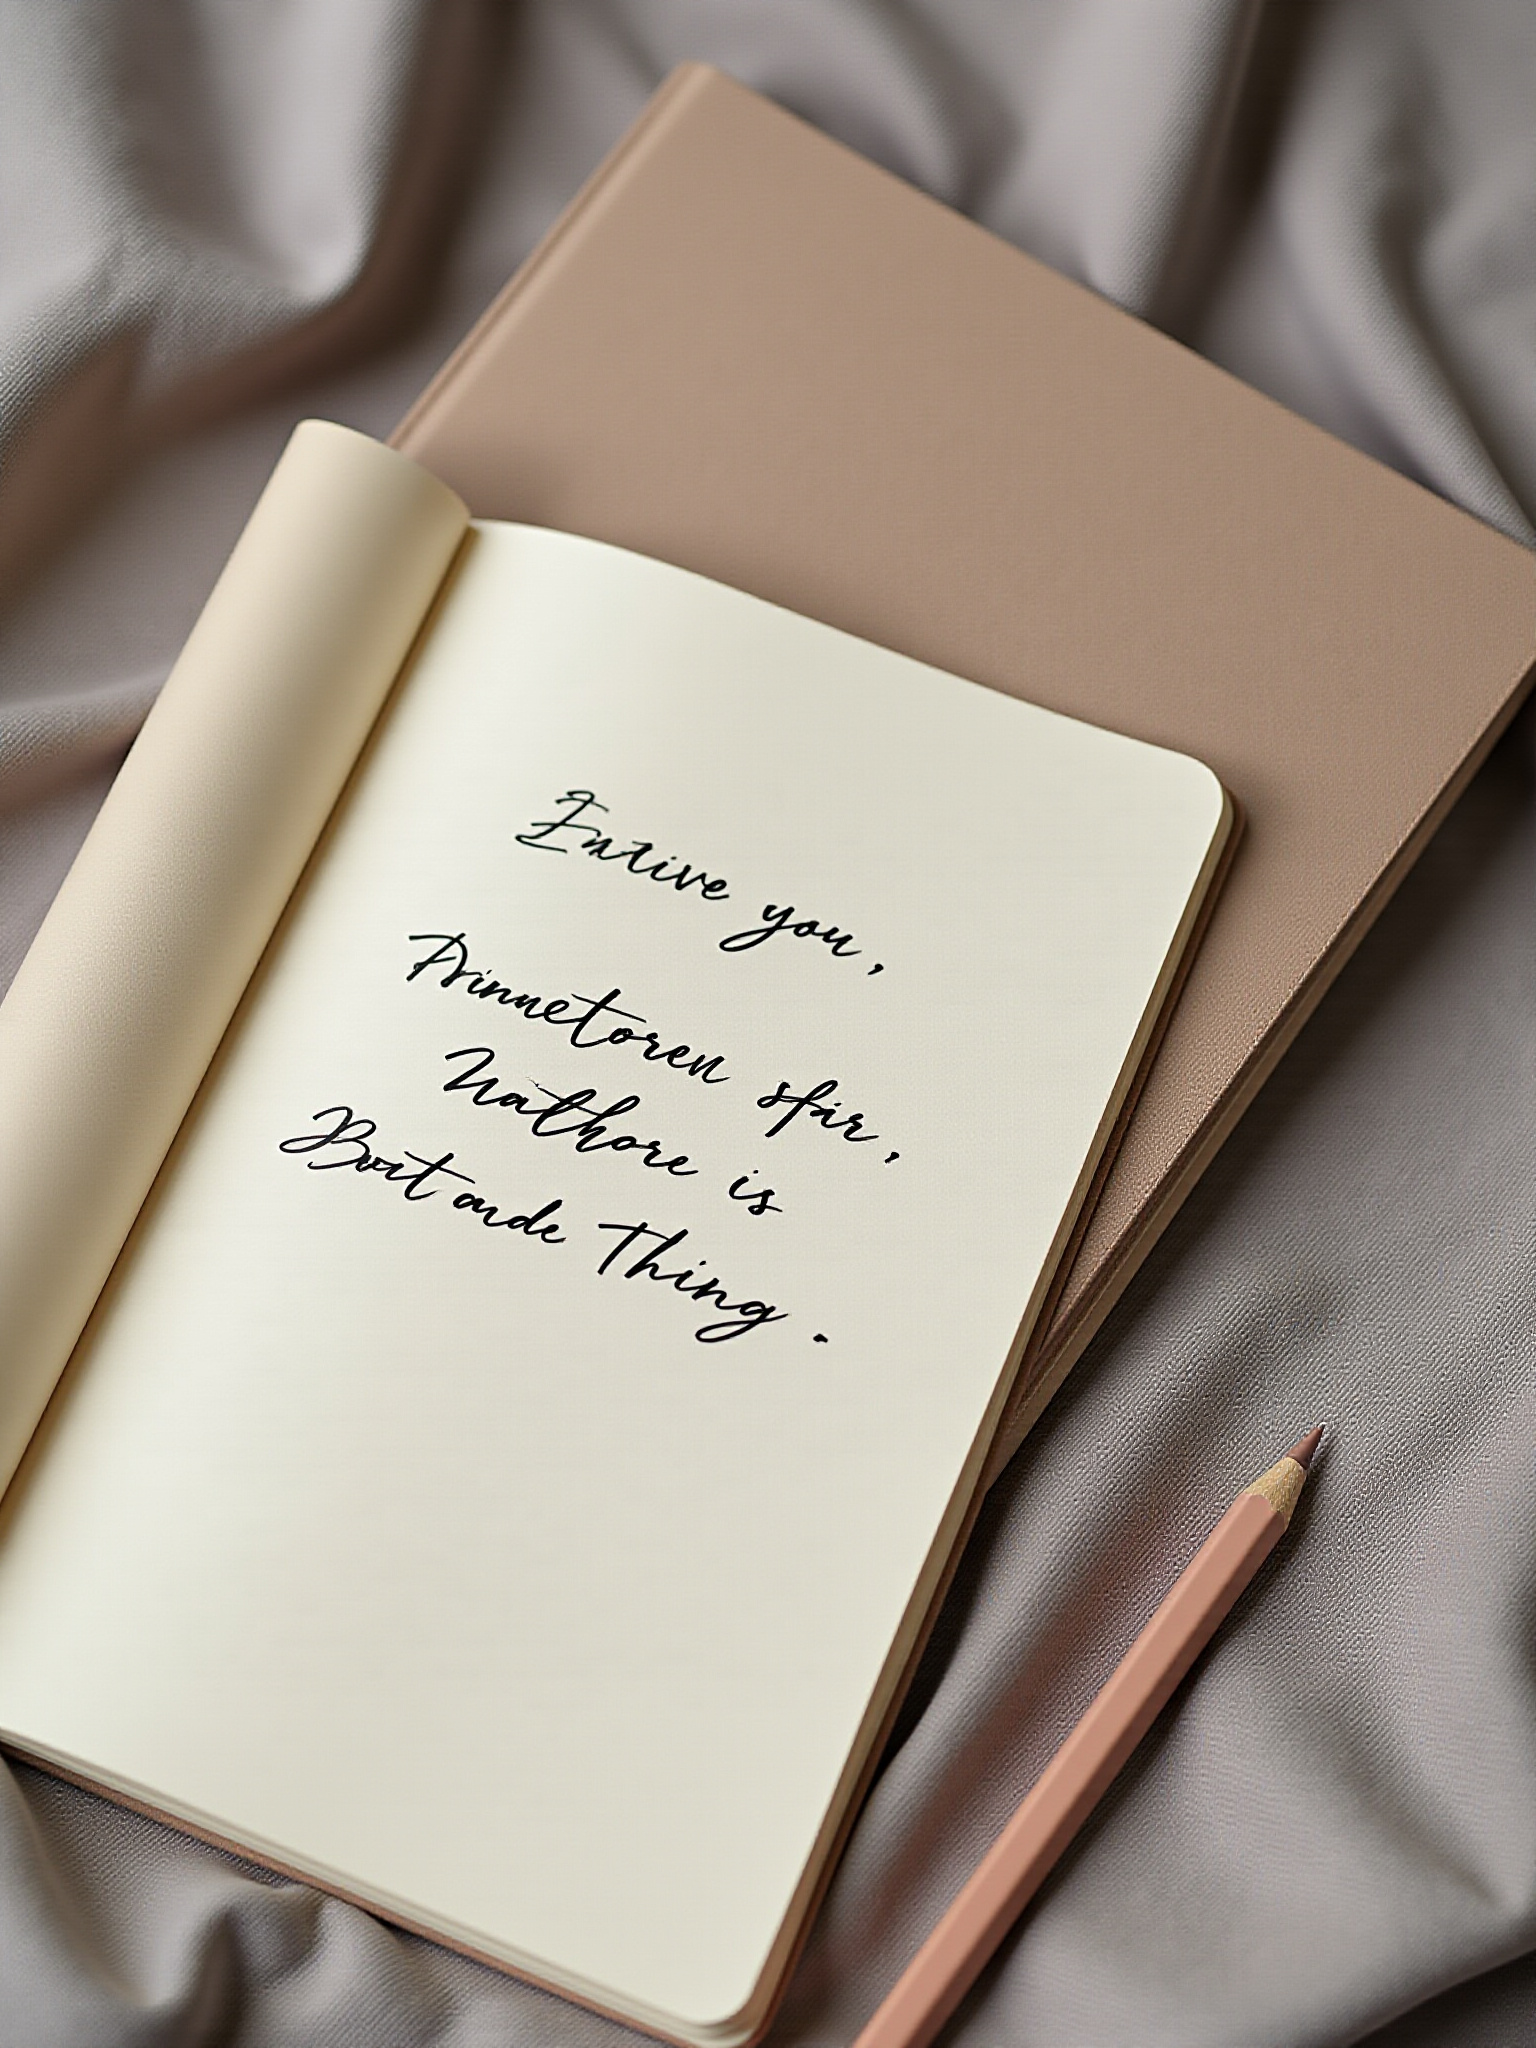 Entive you,
Prinnetoren sfar,
Nathore is
Bortande Thing.